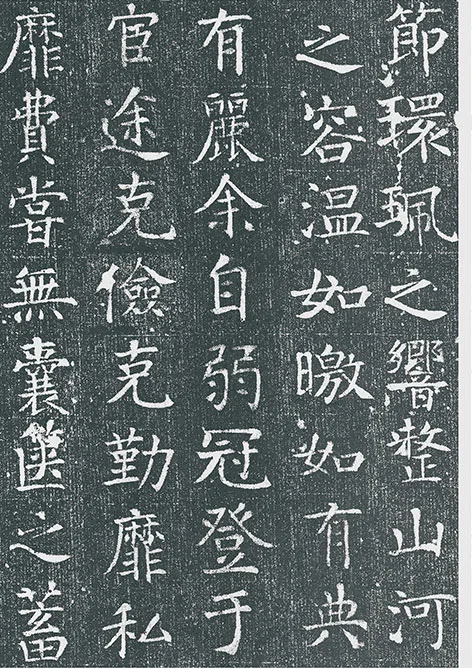 節環珮之響整山河
之容温如曒如有典
有麗余自弱冠登于
宦途克儉克勤靡私
靡費嘗無囊篋之蓄